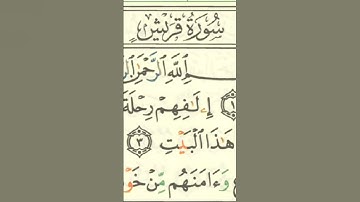 سُورَةُ قُرَيْشٍ
ـسْمِ ٱللَّهِ ٱلرَّحْمَٰنِ
١ إِۦلَٰفِهِمْ رِحْلَةَ
هَٰذَا ٱلْبَيْتِ ٣
وَءَامَنَهُم مِّنْ خَوْ